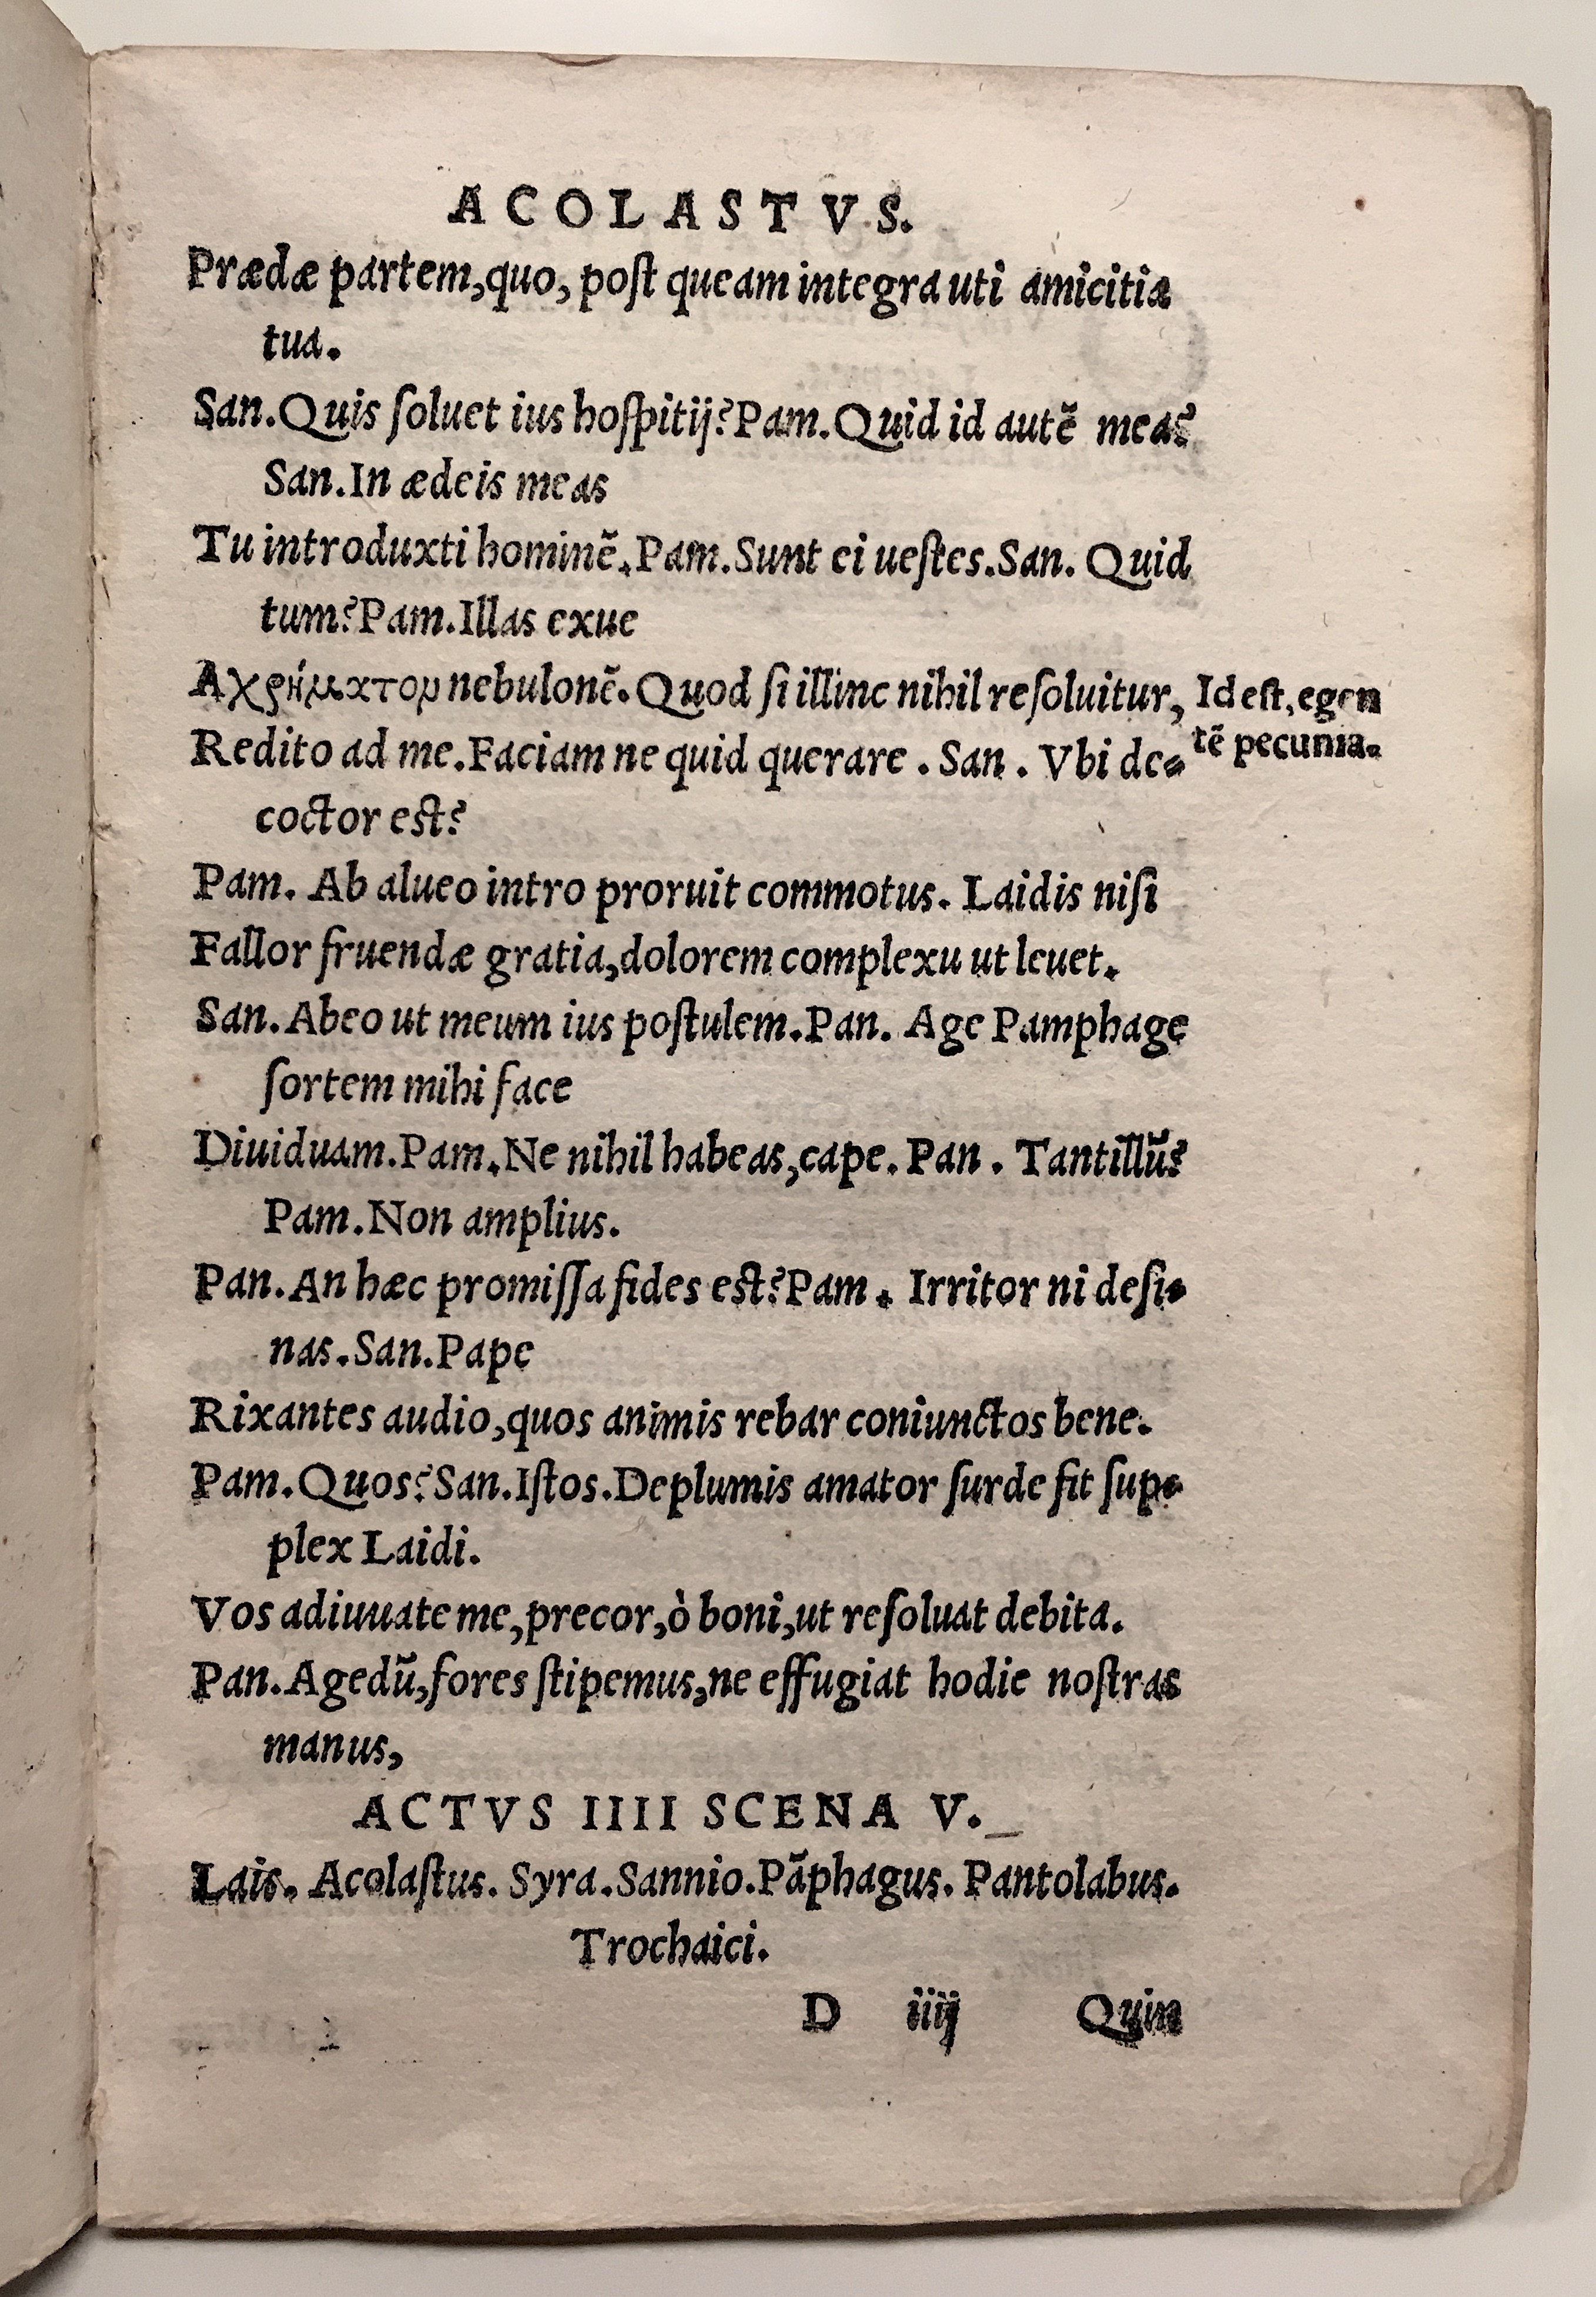 ACOLASTVS.
Prædæ partem,quo, poſt queam integra uti amicitia
tua.
San.Quis ſoluet ius hoſpitij?Pam.Quid id autẽ mea?
San.In ædeis meas
Tu introduxti hominẽ.Pam.Sunt ei ueſtes.San. Quid
tum?Pam.Illas exue
Aχρήματον nebulonẽ.Quod ſi illinc nihil reſoluitur,
Id eſt, egen
Redito ad me.Faciam ne quid querare . San . Vbi de-
tẽ pecunia.
coctor eſt?
Pam. Ab alueo intro proruit commotus. Laidis niſi
Fallor fruendæ gratia,dolorem complexu ut leuet.
San.Abeo ut meum ius poſtulem.Pan. Age Pamphage
ſortem mihi face
Diuiduam.Pam.Ne nihil habeas,cape.Pan . Tantillũ?
Pam.Non amplius.
Pan.An hæc promiſſa fides eſt?Pam . Irritor ni deſi-
nas.San.Pape
Rixantes audio,quos animis rebar coniunctos bene.
Pam.Quos?San.Iſtos.Deplumis amator ſurde fit ſup-
plex Laidi.
Vos adiuuate me,precor,ò boni,ut reſoluat debita.
Pan.Agedũ,fores ſtipemus,ne effugiat hodie noſtras
manus,
ACTVS IIII SCENA V.
Lais. Acolaſtus. Syra.Sannio.Pãphagus. Pantolabus.
Trochaici.
D iiij Quin